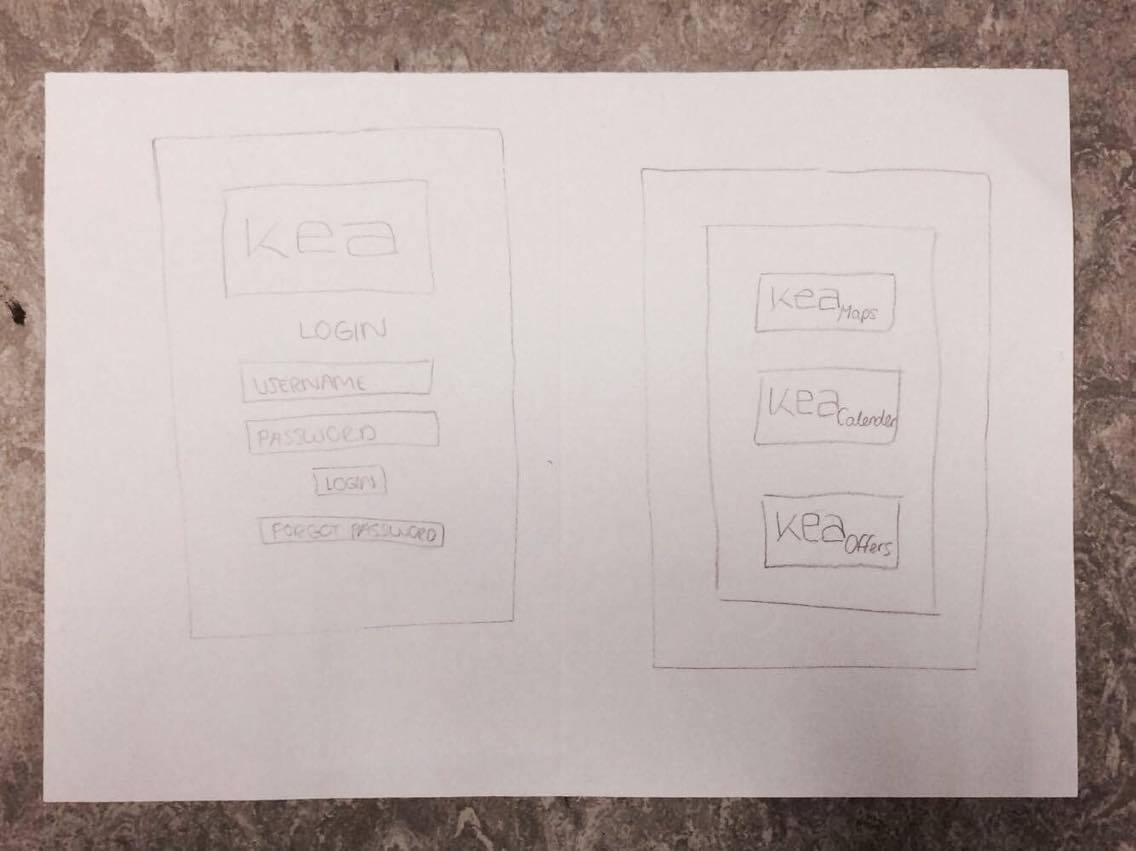 kea
LOGIN
USERNAME
PASSWORD
LOGIN
FORGOT PASSWORD
kea Maps
kea Calender
kea Offers